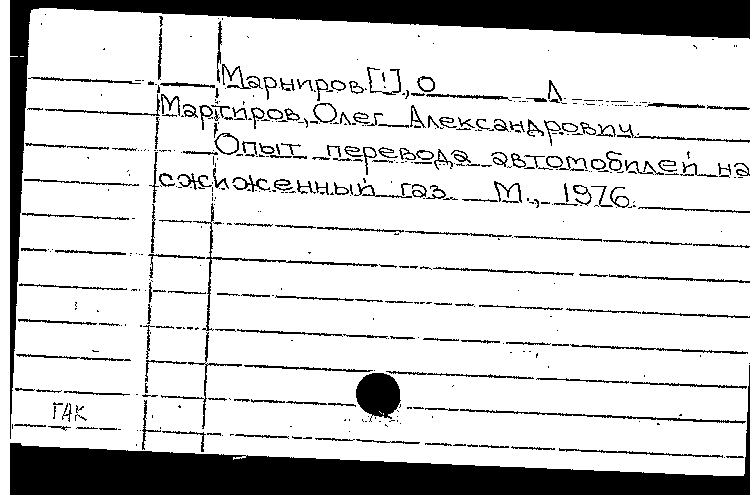 Марнпров [!], О А
Мартиров, Олег Александрович.
Опыт перевода автомобилей на
сжиженный газ. М., 1976.
ГАК